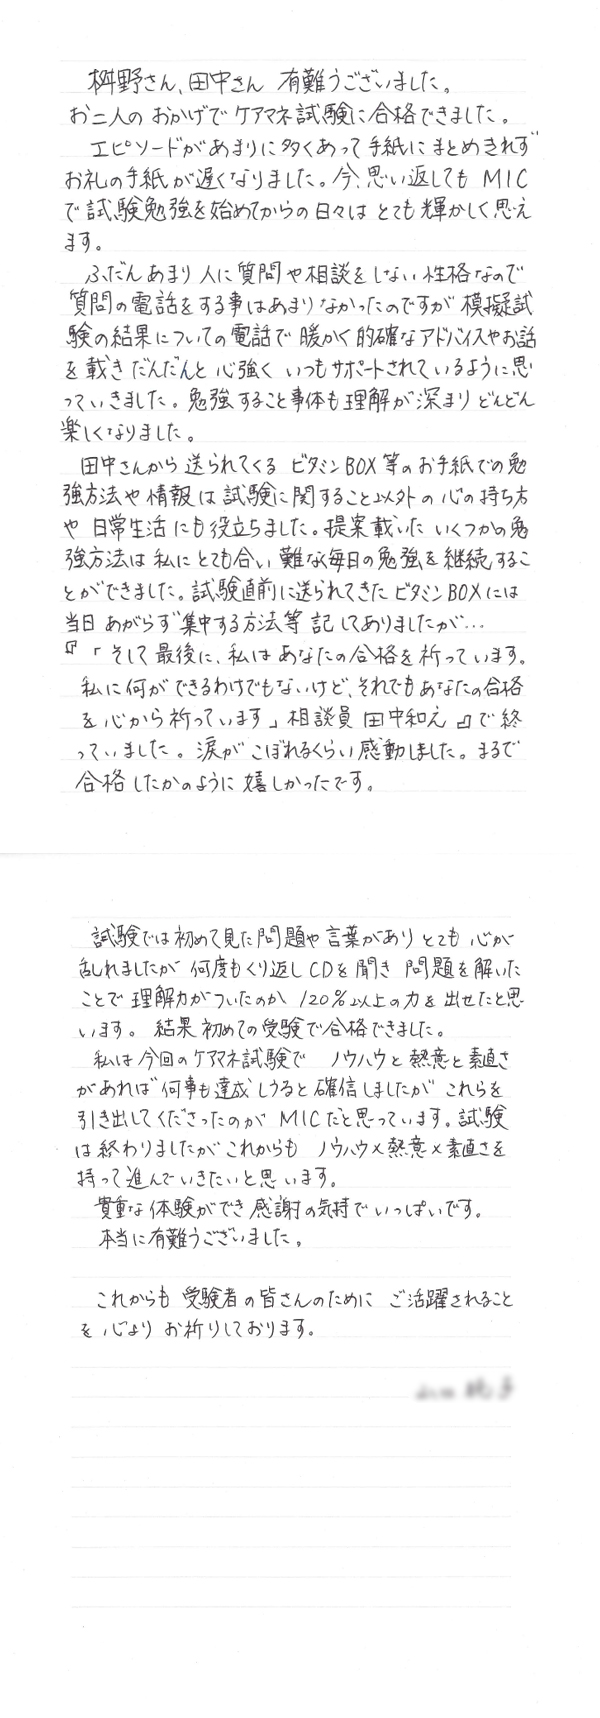 桝野さん、田中さん 有難うございました。
お二人の おかげで ケアマネ試験に合格できました。
エピソードがあまりに多くあって手紙に まとめきれず
お礼の手紙が遅くなりました。今、思い返しても MIC
で試験勉強を始めてからの日々は とても輝かしく思え
ます。
ふだん あまり 人に質問や相談をしない性格なので
質問の電話をする事はあまりなかったのですが 模擬試
験の結果についての電話で 暖かく的確なアドバイスやお話
を 載き だんだんと 心強く いつもサポートされているように思
っていきました。勉強すること事体も理解が深まりどんどん
楽しくなりました。
田中さんから 送られてくる ビタミンBOX等のお手紙での勉
強方法や情報は試験に関すること以外の心の持ち方
や 日常生活にも役立ちました。提案載いた いくつかの勉
強方法は私にとても合い 難なく毎日の勉強を継続するこ
とができました。試験直前に送られてきた ビタミンBOXには
当日 あがらず集中する方法等 記してありましたが…
『「そして最後に、私はあなたの合格を祈っています。
私に何ができるわけでもないけど、それでもあなたの合格
を 心から祈っています」相談員 田中和え』で終
っていました。涙がこぼれるくらい感動しました。まるで
合格したかのように嬉しかったです。
試験では初めて見た問題や言葉があり とても 心が
乱れましたが 何度もくり返しCDを聞き 問題を解いた
ことで 理解力がついたのか 120%以上の力を出せたと思
います。結果 初めての受験で合格できました。
私は今回のケアマネ試験で ノウハウと熱意と素直さ
があれば何事も達成しうると確信しましたが これらを
引き出してくださったのが MICだと思っています。試験
は終わりましたが これからも ノウハウ×熱意×素直さを
持って進んでいきたいと思います。
貴重な体験ができ感謝の気持でいっぱいです。
本当に有難うございました。
これからも 受験者の皆さんのために ご活躍されること
を 心より お祈りしております。